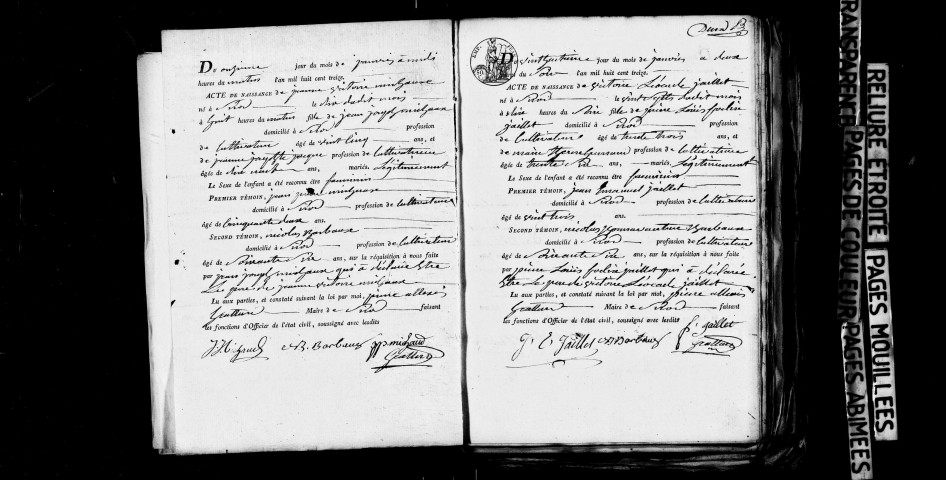 Du onzieme jour du mois de janvier à midi
heures du matin l'an mil huit cent treize.
ACTE DE NAISSANCE de jeanne victoire michaux
né à Sirod le dix dudit mois
à huit heures du matin fille de jean joseph michaux
domicilié à Sirod profession
de Cultivateur âgé de vint cinq ans, et
de jeanne profession de Cultivatrice
âgée de dix huit ans, mariés. Légitimement
Le Sexe de l'enfant a été reconnu être feminin
PREMIER TÉMOIN, jean michaux
domicilié à Sirod profession de Cultivateur
âgé de Cinquante deux ans.
SECOND TÉMOIN, nicolas Barbaux
domicilié à Sirod profession de Cultivateur
âgé de Soixante Six ans, sur la réquisition à nous faite
par jean joseph michaux qui à déclaré être
Le père de jeanne victoire michaux
Lu aux parties, et constaté suivant la loi par moi, pierre allexis
Maire de Sirod faisant
les fonctions d'Officier de l'état civil, soussigné avec lesdits
N. B. Barbaux
Du vinthuitieme jour du mois de janvier a deux
heures du Soir l'an mil huit cent treize.
ACTE DE NAISSANCE de victoire Léocade jaillet
né à Sirod le vint Sept dudit mois
à heures du Soir fille de pierre Louis felix
jaillet domicilié à Sirod profession
de Cultivateur âgé de trente trois ans, et
de marie profession de Cultivatrice
âgée de trente Six ans, mariés. Légitimement
Le Sexe de l'enfant a été reconnu être feminin
PREMIER TÉMOIN, jean Emanuel jaillet
domicilié à Sirod profession de Cultivateur
âgé de vint trois ans.
SECOND TÉMOIN, nicolas Bonnaventure Barbaux
domicilié à Sirod profession de Cultivateur
âgé de Soixante Six ans, sur la réquisition à nous faite
par pierre Louis felix jaillet qui à déclaré
Etre Le père de victoire Léocade jaillet
Lu aux parties, et constaté suivant la loi par moi, pierre allexis
Maire de Sirod faisant
les fonctions d'Officier de l'état civil, soussigné avec lesdits
J. E. Jaillet N B Barbaux jaillet
RELIURE ETROITE PAGES MOUILLEES
TRANSPARENCE PAGES DE COULEUR PAGES ABIMEES